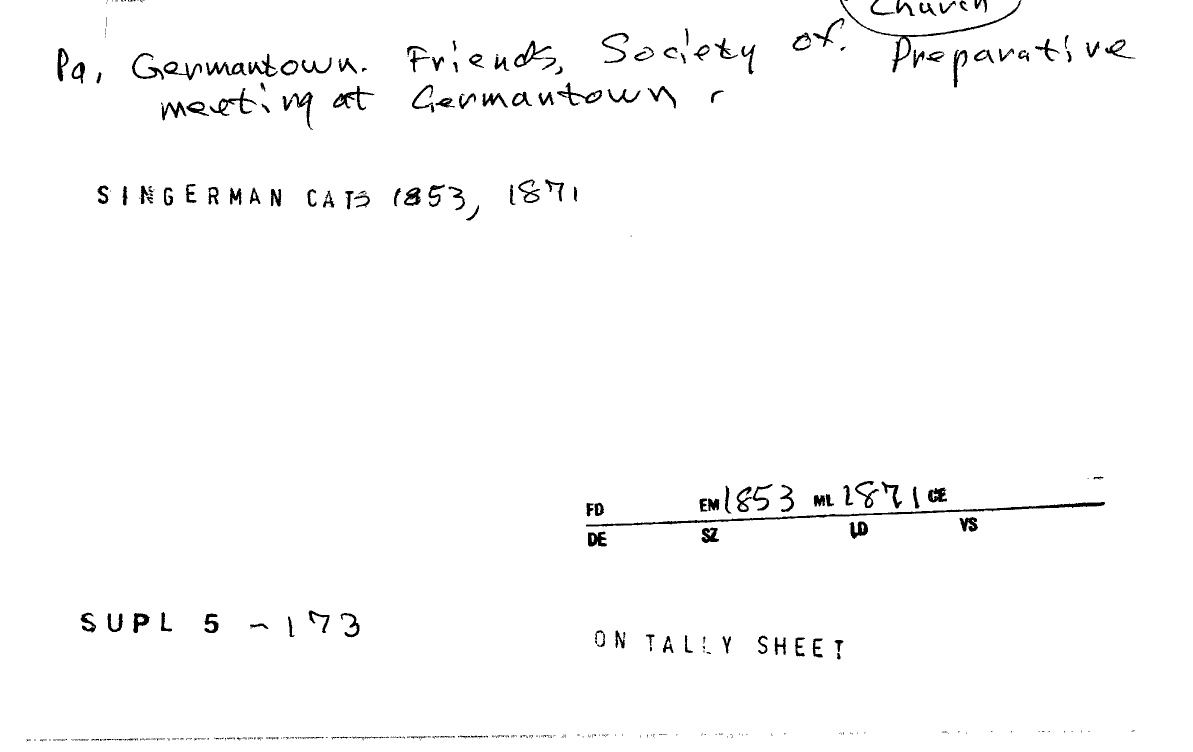 Church
Pa, Germantown. Friends, Society of. Preparative
meeting at Germantown
SINGERMAN CATS 1853, 1871
FD EM 1853 ML 1871 CE
DE SZ LD VS
SUPL 5 - 173
ON TALLY SHEET